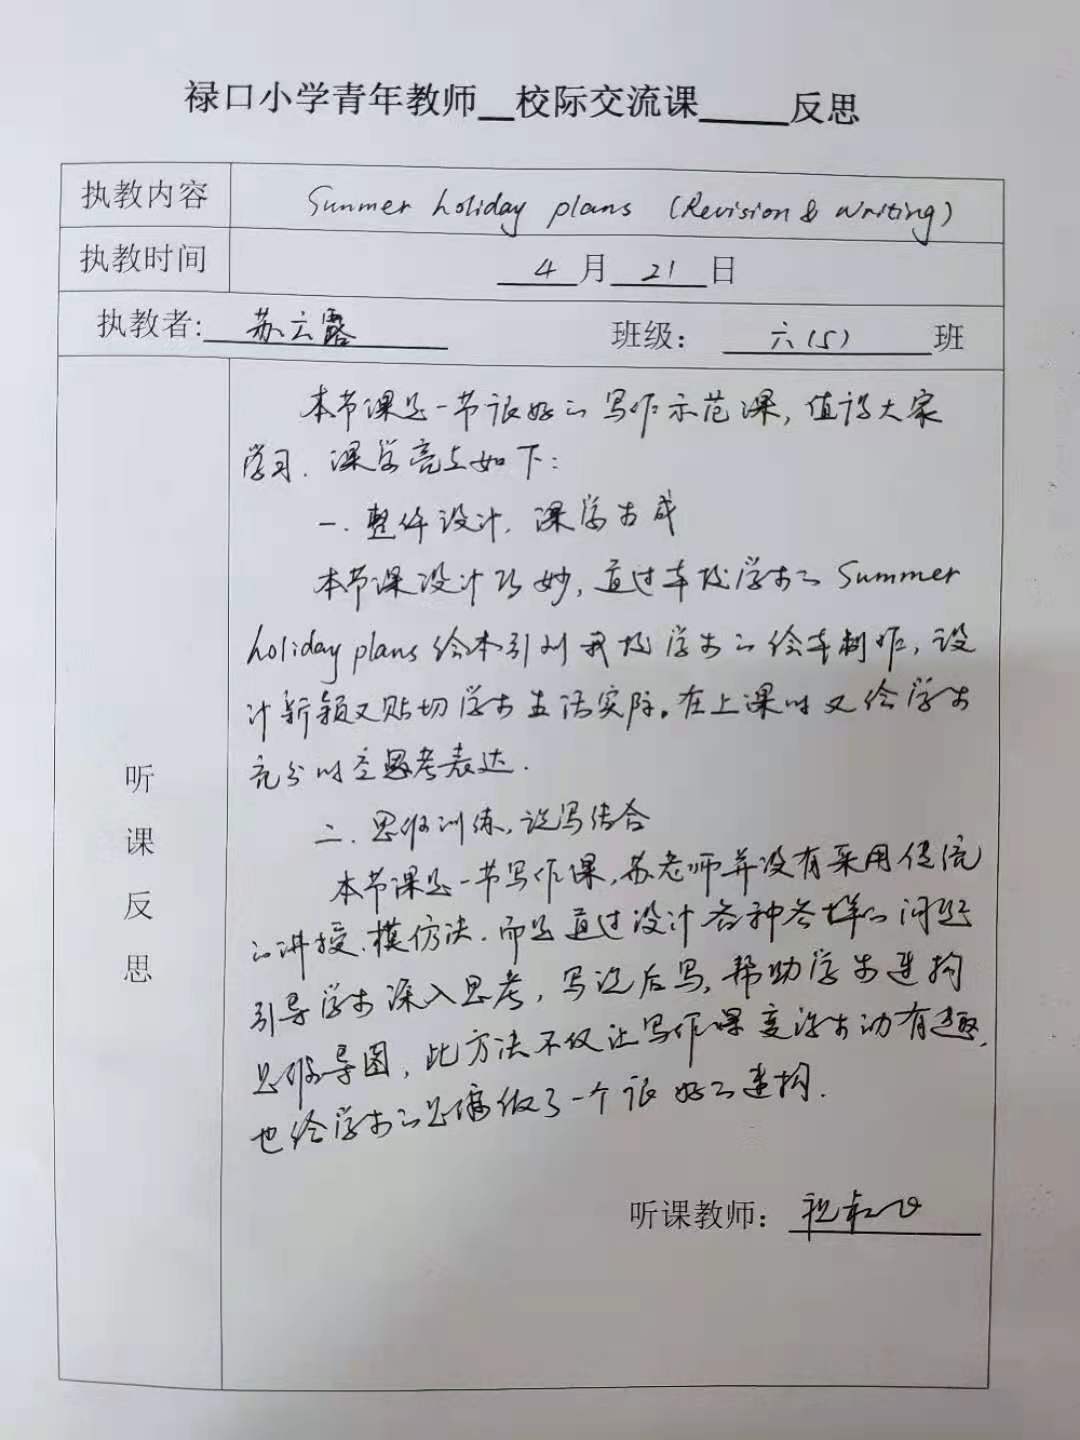 禄口小学青年教师__校际交流课____反思
执教内容 Summer holiday plans (Revision & Writing)
执教时间 4月21日
执教者: 苏云露 班级: 六(5)班
听课反思
本节课是一节很好的写作示范课,值得大家
学习.课堂亮点如下:
一.整体设计,课堂生成
本节课设计巧妙,通过车校学生的Summer
holiday plans绘本引到我校学生的绘本制作,设
计新颖又贴切学生生活实际。在上课时又给学生
充分时空思考表达.
二.思维训练,说写结合
本节课是一节写作课,苏老师并没有采用传统
的讲授、模仿法.而是通过设计各种各样的问题
引导学生深入思考,写说后写,帮助学生建构
思维导图,此方法不仅让写作课变得生动有趣,
也给学生的思维做了一个很好的建构.
听课教师: 祝